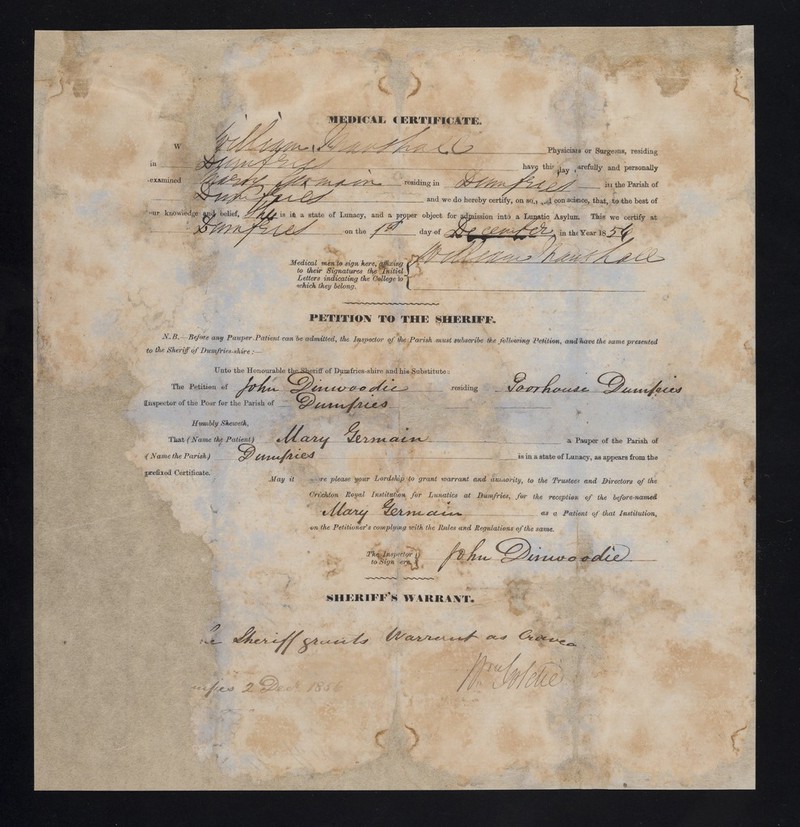 MEDICAL CERTIFICATE.
W William Marshall Physicians or Surgeons, residing
in Dumfries have this day carefully and personally
examined Mary Germain residing in Dumfries in the Parish of
Dumfries and we do hereby certify, on soul and conscience, that, to the best of
our knowledge and belief, She is in a state of Lunacy, and a proper object for admission into a Lunatic Asylum. This we certify at
Dumfries on the 1st day of December in the Year 1856
Medical men to sign here, affixing
to their Signatures the Initial
Letters indicating the College to
which they belong.
William Marshall
PETITION TO THE SHERIFF.
N.B.—Before any Pauper Patient can be admitted, the Inspector of the Parish must subscribe the following Petition, and have the same presented
to the Sheriff of Dumfries-shire:—
Unto the Honourable the Sheriff of Dumfries-shire and his Substitute:
The Petition of John Dinwoodie residing Poorhouse Dumfries
Inspector of the Poor for the Parish of Dumfries
Humbly Sheweth,
That (Name the Patient) Mary Germain a Pauper of the Parish of
(Name the Parish) Dumfries is in a state of Lunacy, as appears from the
prefixed Certificate.
May it please your Lordship to grant warrant and authority, to the Trustees and Directors of the
Crichton Royal Institution for Lunatics at Dumfries, for the reception of the before-named
Mary Germain as a Patient of that Institution,
on the Petitioner's complying with the Rules and Regulations of the same.
The Inspector
to Sign here,
John Dinwoodie
SHERIFF'S WARRANT.
Sheriff grants Warrant as Craved
2 Dec 1856